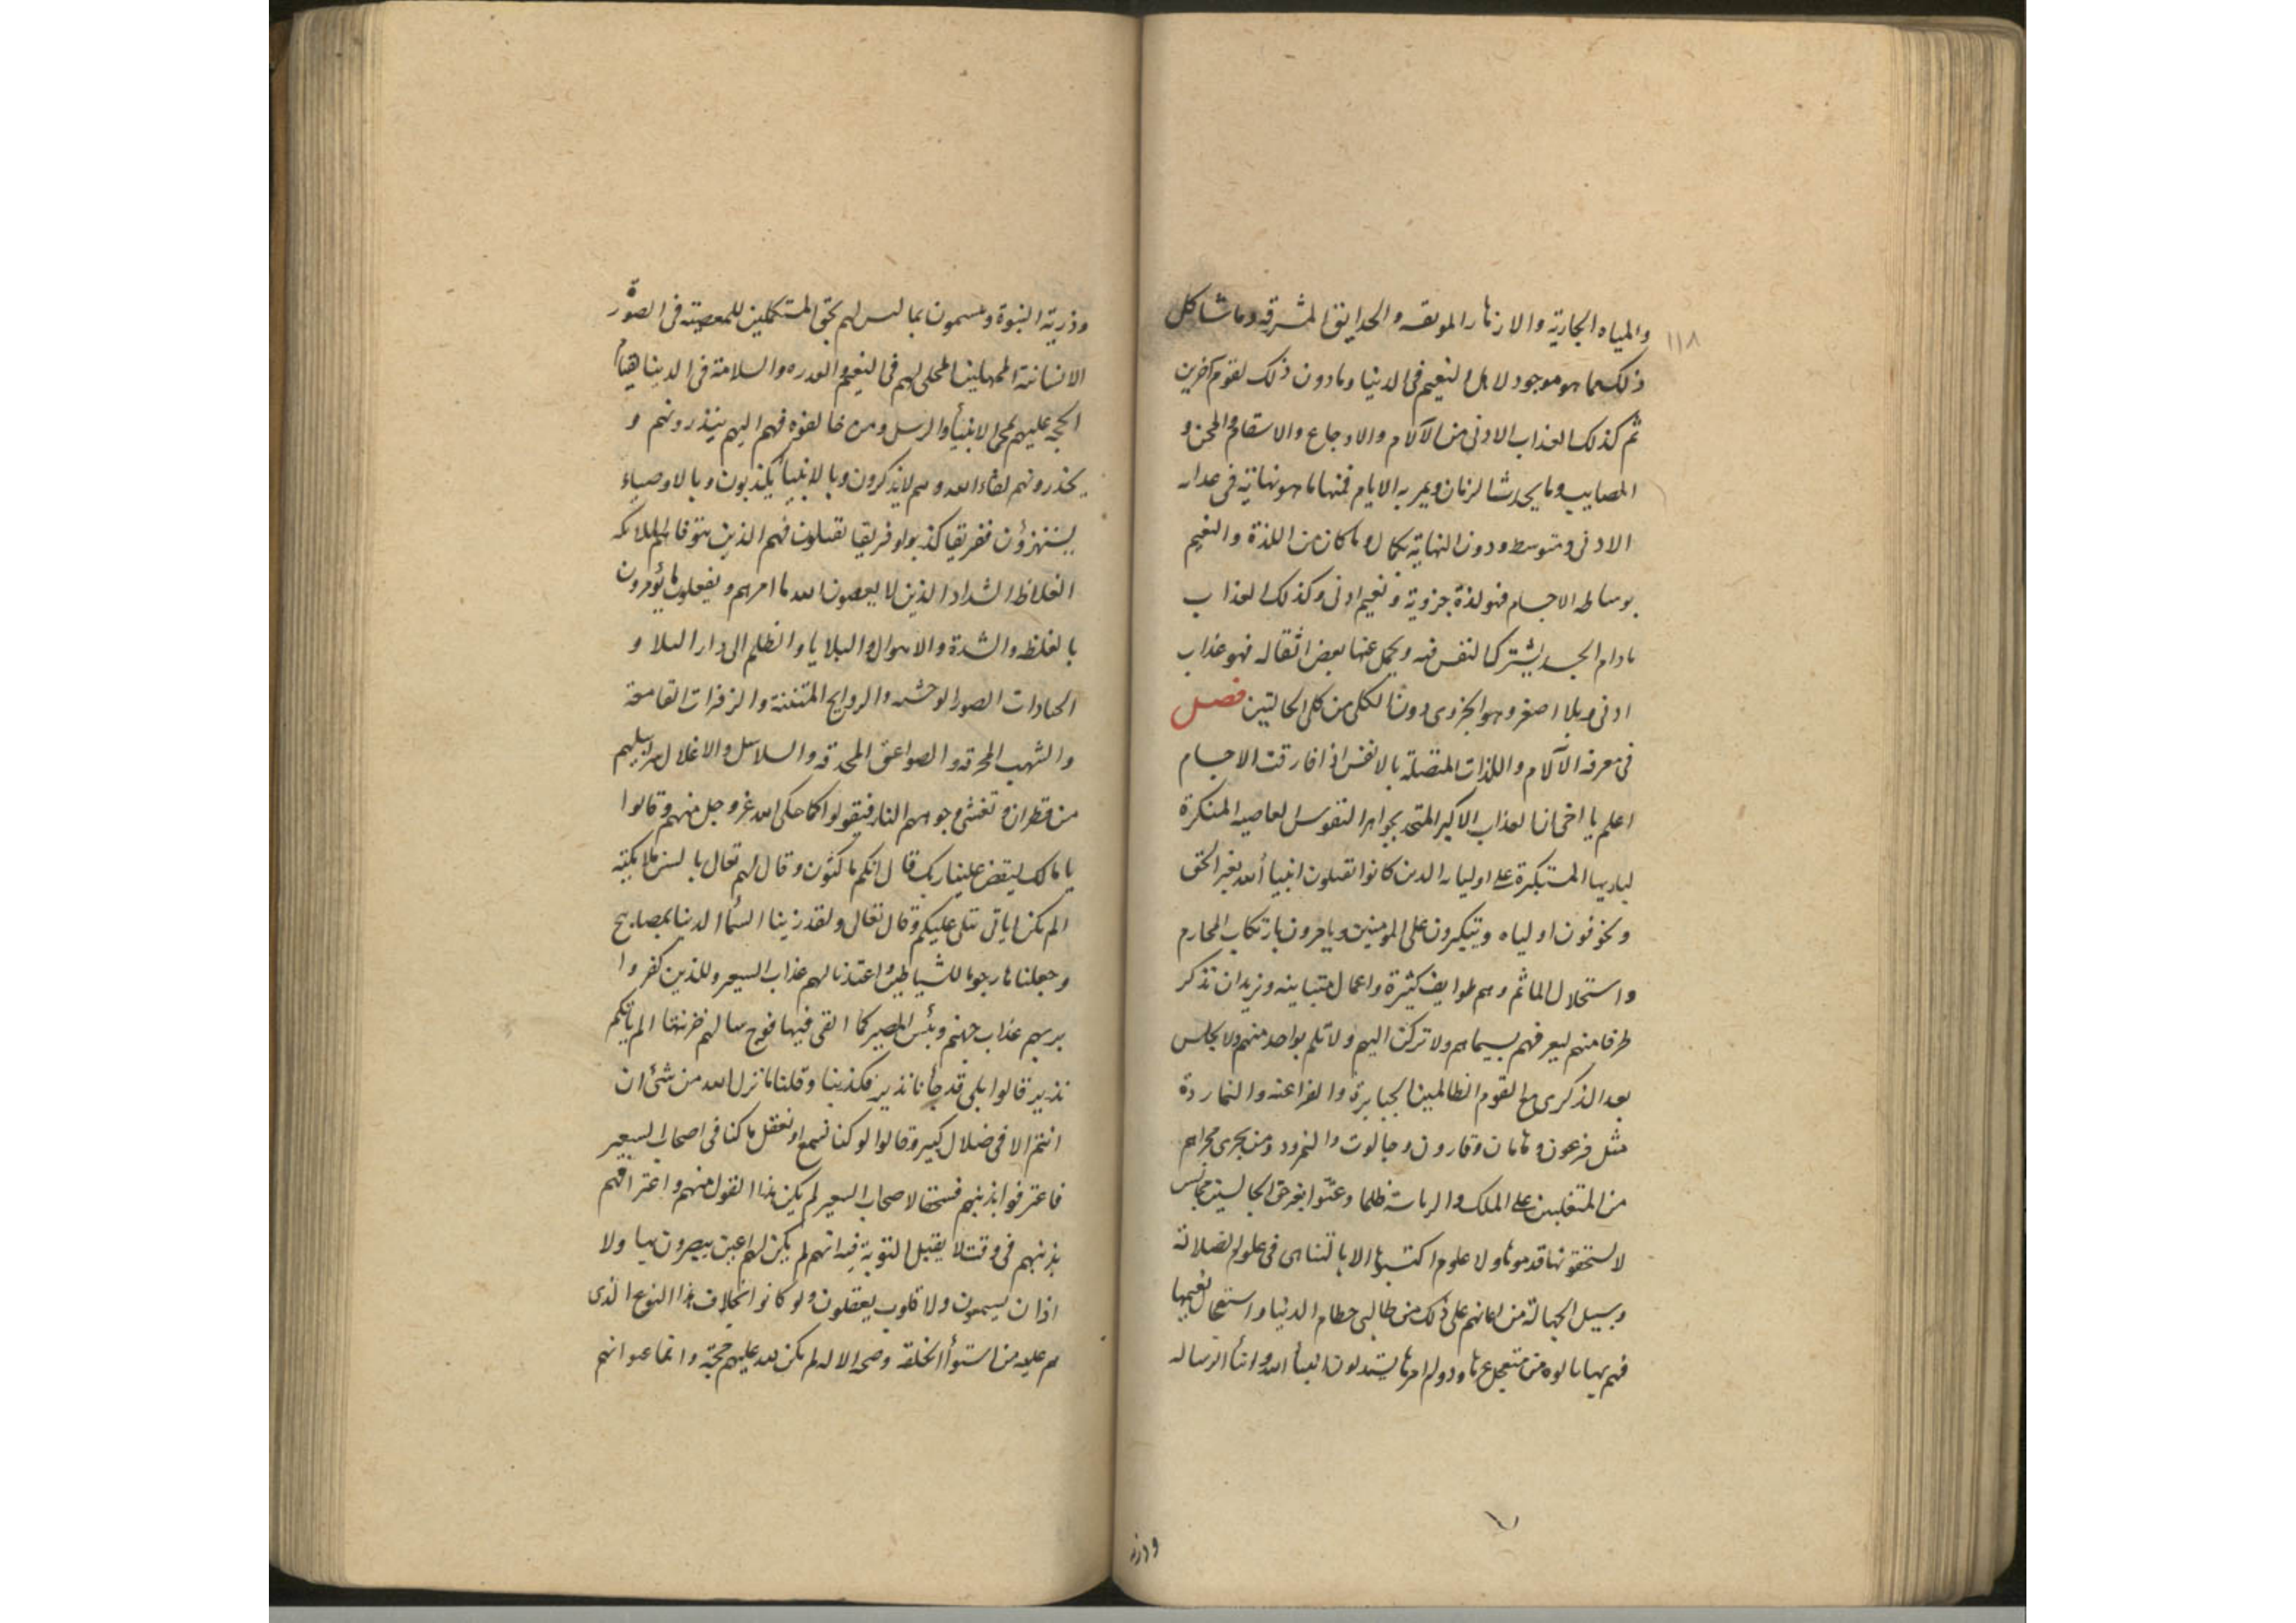 ١١٨
والمياه الجارية والازهار المونقه والحدايق المشرقه وما شاكل
ذلك مما هو موجود لاهل النعيم فى الدنيا وما دون ذلك لقوم آخرين
ثم كذلك العذاب الادنى من الآلام والاوجاع والاسقام والمحن و
المصايب وما يحدث الزمان ويمر به الايام فمنها ما هو نهاية فى عداب
الادنى ومتوسط ودون النهاية بكمال وما كان من اللذة والنعيم
بوساطه الاجسام فهو لذة جزوية ونعيم ادنى وكذلك العذاب
مادام الجسد يشترك النفس فيه ويحمل عنها بعض اثقاله فهو عذاب
ادنى وبلا اصغر وهو الجزوى دون الكلى من كلى الحالتين فصل
فى معرفه الآلام واللذات المتصلة بالانفس اذا فارقت الاجسام
اعلم يا اخى ان العذاب الاكبر المتحد بجواهر النفوس العاصيه المنكرة
لباريها المستكبرة على اوليائه الذين كانوا يقتلون انبيأ الله بغير الحق
ويخوفون اولياه ويتكبرون على المومنين ويامرون بارتكاب المحارم
واستحلال الماثم وهم طوايف كثيرة واعمال متباينه ونريد ان نذكر
طرفا منهم ليعرفهم بسيماهم ولا تركن اليهم ولا تلم بواحد منهم ولا تجلس
بعد الذكرى مع القوم الظالمين الجبابرة والفراعنه والنماردة
مثل فرعون وهامان وقارون وجالوت والنمرود ومن يجرى مجراهم
من المتغلبين على الملك والرياسة ظلما وعتوا بغير حق الجالسين مجالس
لا يستحقونها قدموها ولا علوم اكتسبوها الا بالتناهى فى علو الضلالة
وسبيل الجهالة من اعانهم على ذلك من طالبى حطام الدنيا واستعجال نعيمها
فهم بها نالوه من متعجل عزها ودوام امرها يستذلون انبيأ الله وابنأ الرساله
وذرية
وذرية النبوة ويسمون بما ليس لهم بحق المستكملين للمعصية فى الصورة
الانسانية الممهلين المخلى لهم فى النعيم والقدره والسلامة فى الدنيا لقيام
الحجه عليهم بمجى الانبيأ والرسل ومن خالفوه فهم اليهم ينذرونهم و
يحذرونهم لقاء الله وهم لا يذكرون وبالانبيأ يكذبون وبالاوصياء
يستهزؤن ففريقا كذبوا وفريقا يقتلون فهم الذين يتوفاهم الملائكه
الغلاظ الشداد الذين لا يعصون الله ما امرهم ويفعلون ما يؤمرون
بالغلظه والشدة والاهوال والبلايا والظلم الى دار البلا و
الحيادات الصور الوحشه والروايح المنتنة والزفرات القامعة
والشهب المحرقه والصواعق المحدقه والسلاسل والاغلال سرابيلهم
من قطران وتغشى وجوههم النار فيقولوا كما حكى الله عز وجل منهم وقالوا
يا مالك ليقض علينا ربك قال انكم ماكثون وقال لهم تعالى بالسن ملايكته
الم يكن اياتى تتلى عليكم وقال تعالى ولقد زينا السمأ الدنيا بمصابيح
وجعلناها رجوما للشياطين واعتدنا لهم عذاب السعير وللذين كفروا
بربهم عذاب جهنم وبئس المصير كلما القى فيها فوج سالهم خزنتها الم ياتكم
نذير قالوا بلى قد جأنا نذير فكذبنا وقلنا ما نزل الله من شئ ان
انتم الا فى ضلال كبير وقالوا لو كنا نسمع او نعقل ما كنا فى اصحاب السعير
فاعترفوا بذنبهم فسحقا لاصحاب السعير لم يكن هذا القول منهم واعترافهم
بذنبهم فى وقت لا يقبل التوبة فيه انهم لم يكن لهم اعين يبصرون بها ولا
اذان يسمعون ولا قلوب يعقلون ولو كانوا بخلاف هذا النوع الذى
هم عليه من استوأ الخلقة وصحه الاله لم يكن لله عليهم حجة وانما عموا انهم